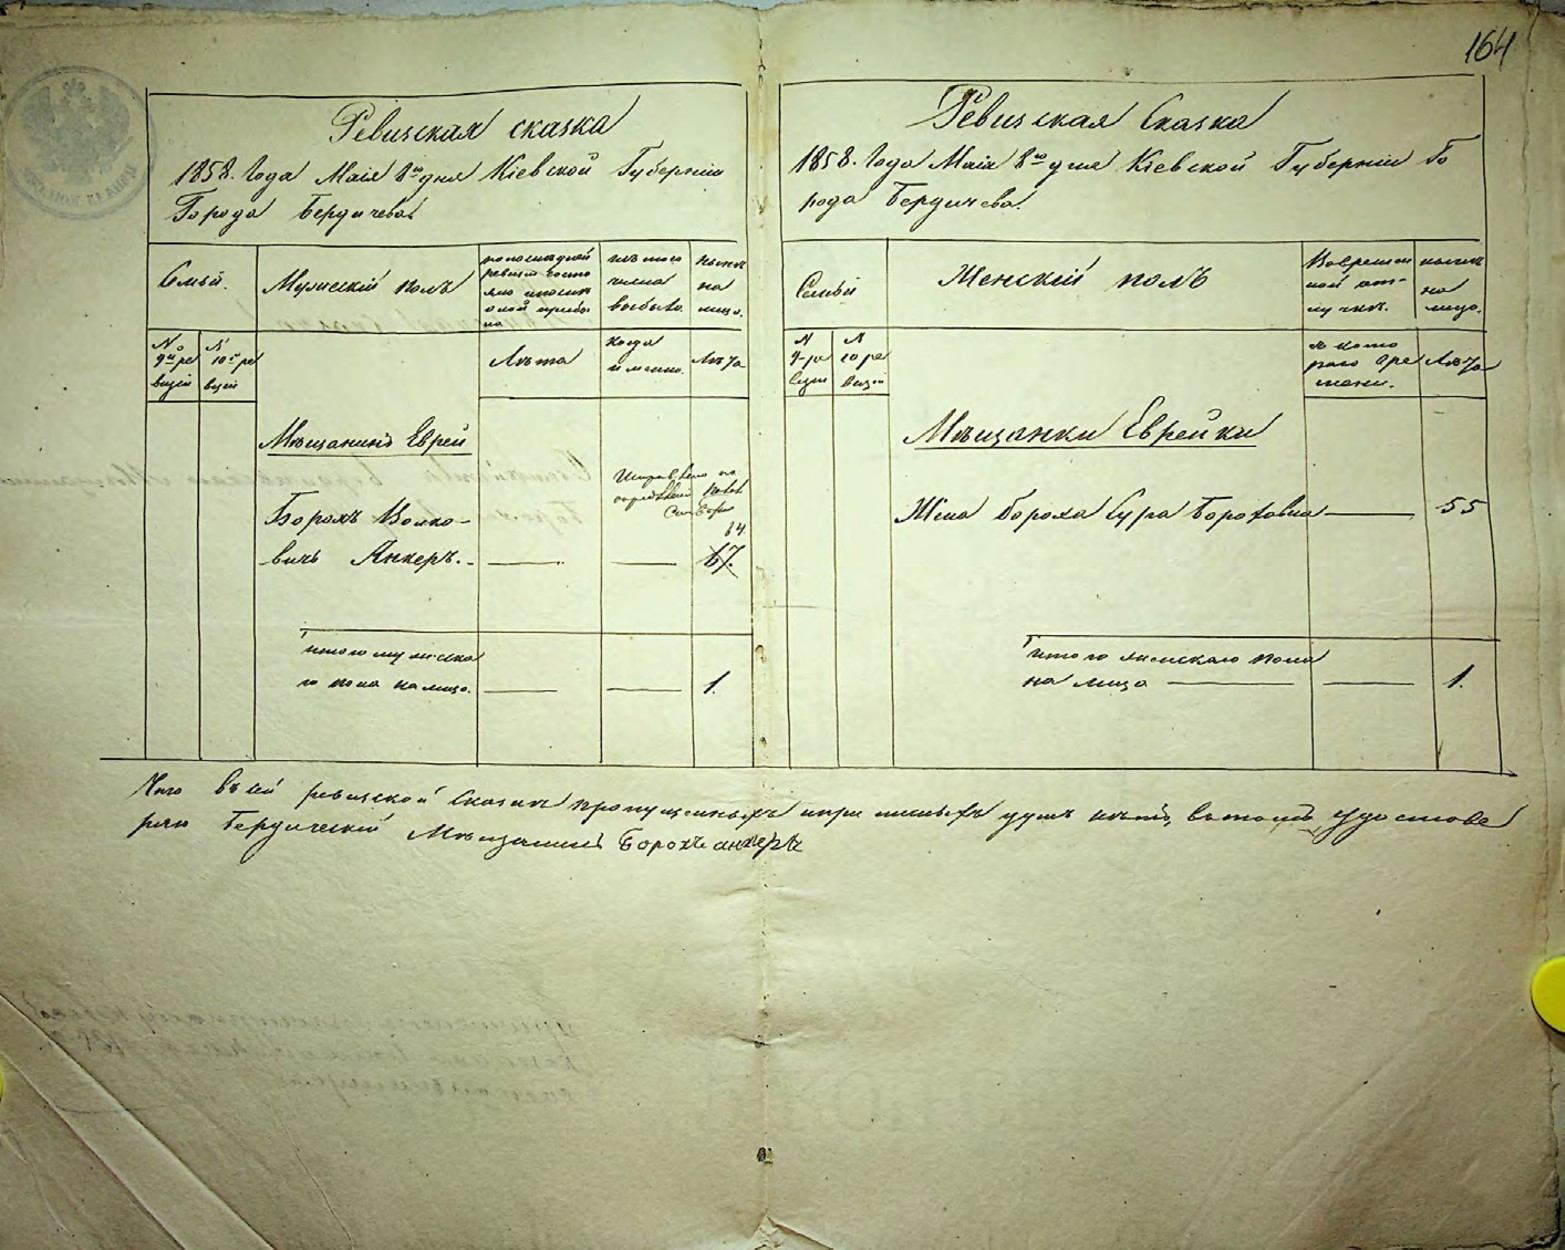 164
Ревизская сказка
1858. Года Маія 8го дня Кіевской Губерніи
Города Бердичева
Семьи.
Мужескій полъ
по последней
ревизіи состо
яло и после
оной прибы
ло
изъ того
числа
выбыло.
ныне
на
лицо.
№
9й ре
визіи
№
10й ре
визіи
Лѣта
когда
и менно.
Лѣта
Мѣщанинъ Еврей
Борохъ Волко-
вичь Анкеръ.
по
64
67.
итого мужеска
го пола на лицо.
1.
Ревизская Сказка
1858. Года Маія 8го дня Кіевской Губерніи Го
рода Бердичева.
Семьи
Женскій полъ
Во времен
ной от-
лучке.
ныне
на
лицо.
№
9-ре
визіи
№
10 ре
визіи
съ кото
раго вре
мени.
Лѣта
Мѣщанки Еврейки
Жена Бороха Сура Бороховна
55
итого женскаго пола
на лицо
1.
Что въ сей ревизской сказке пропущенныхъ и приписныхъ душъ нѣтъ, въ томъ удостове
ряю Бердическій Мѣщанинъ Борохъ анкеръ